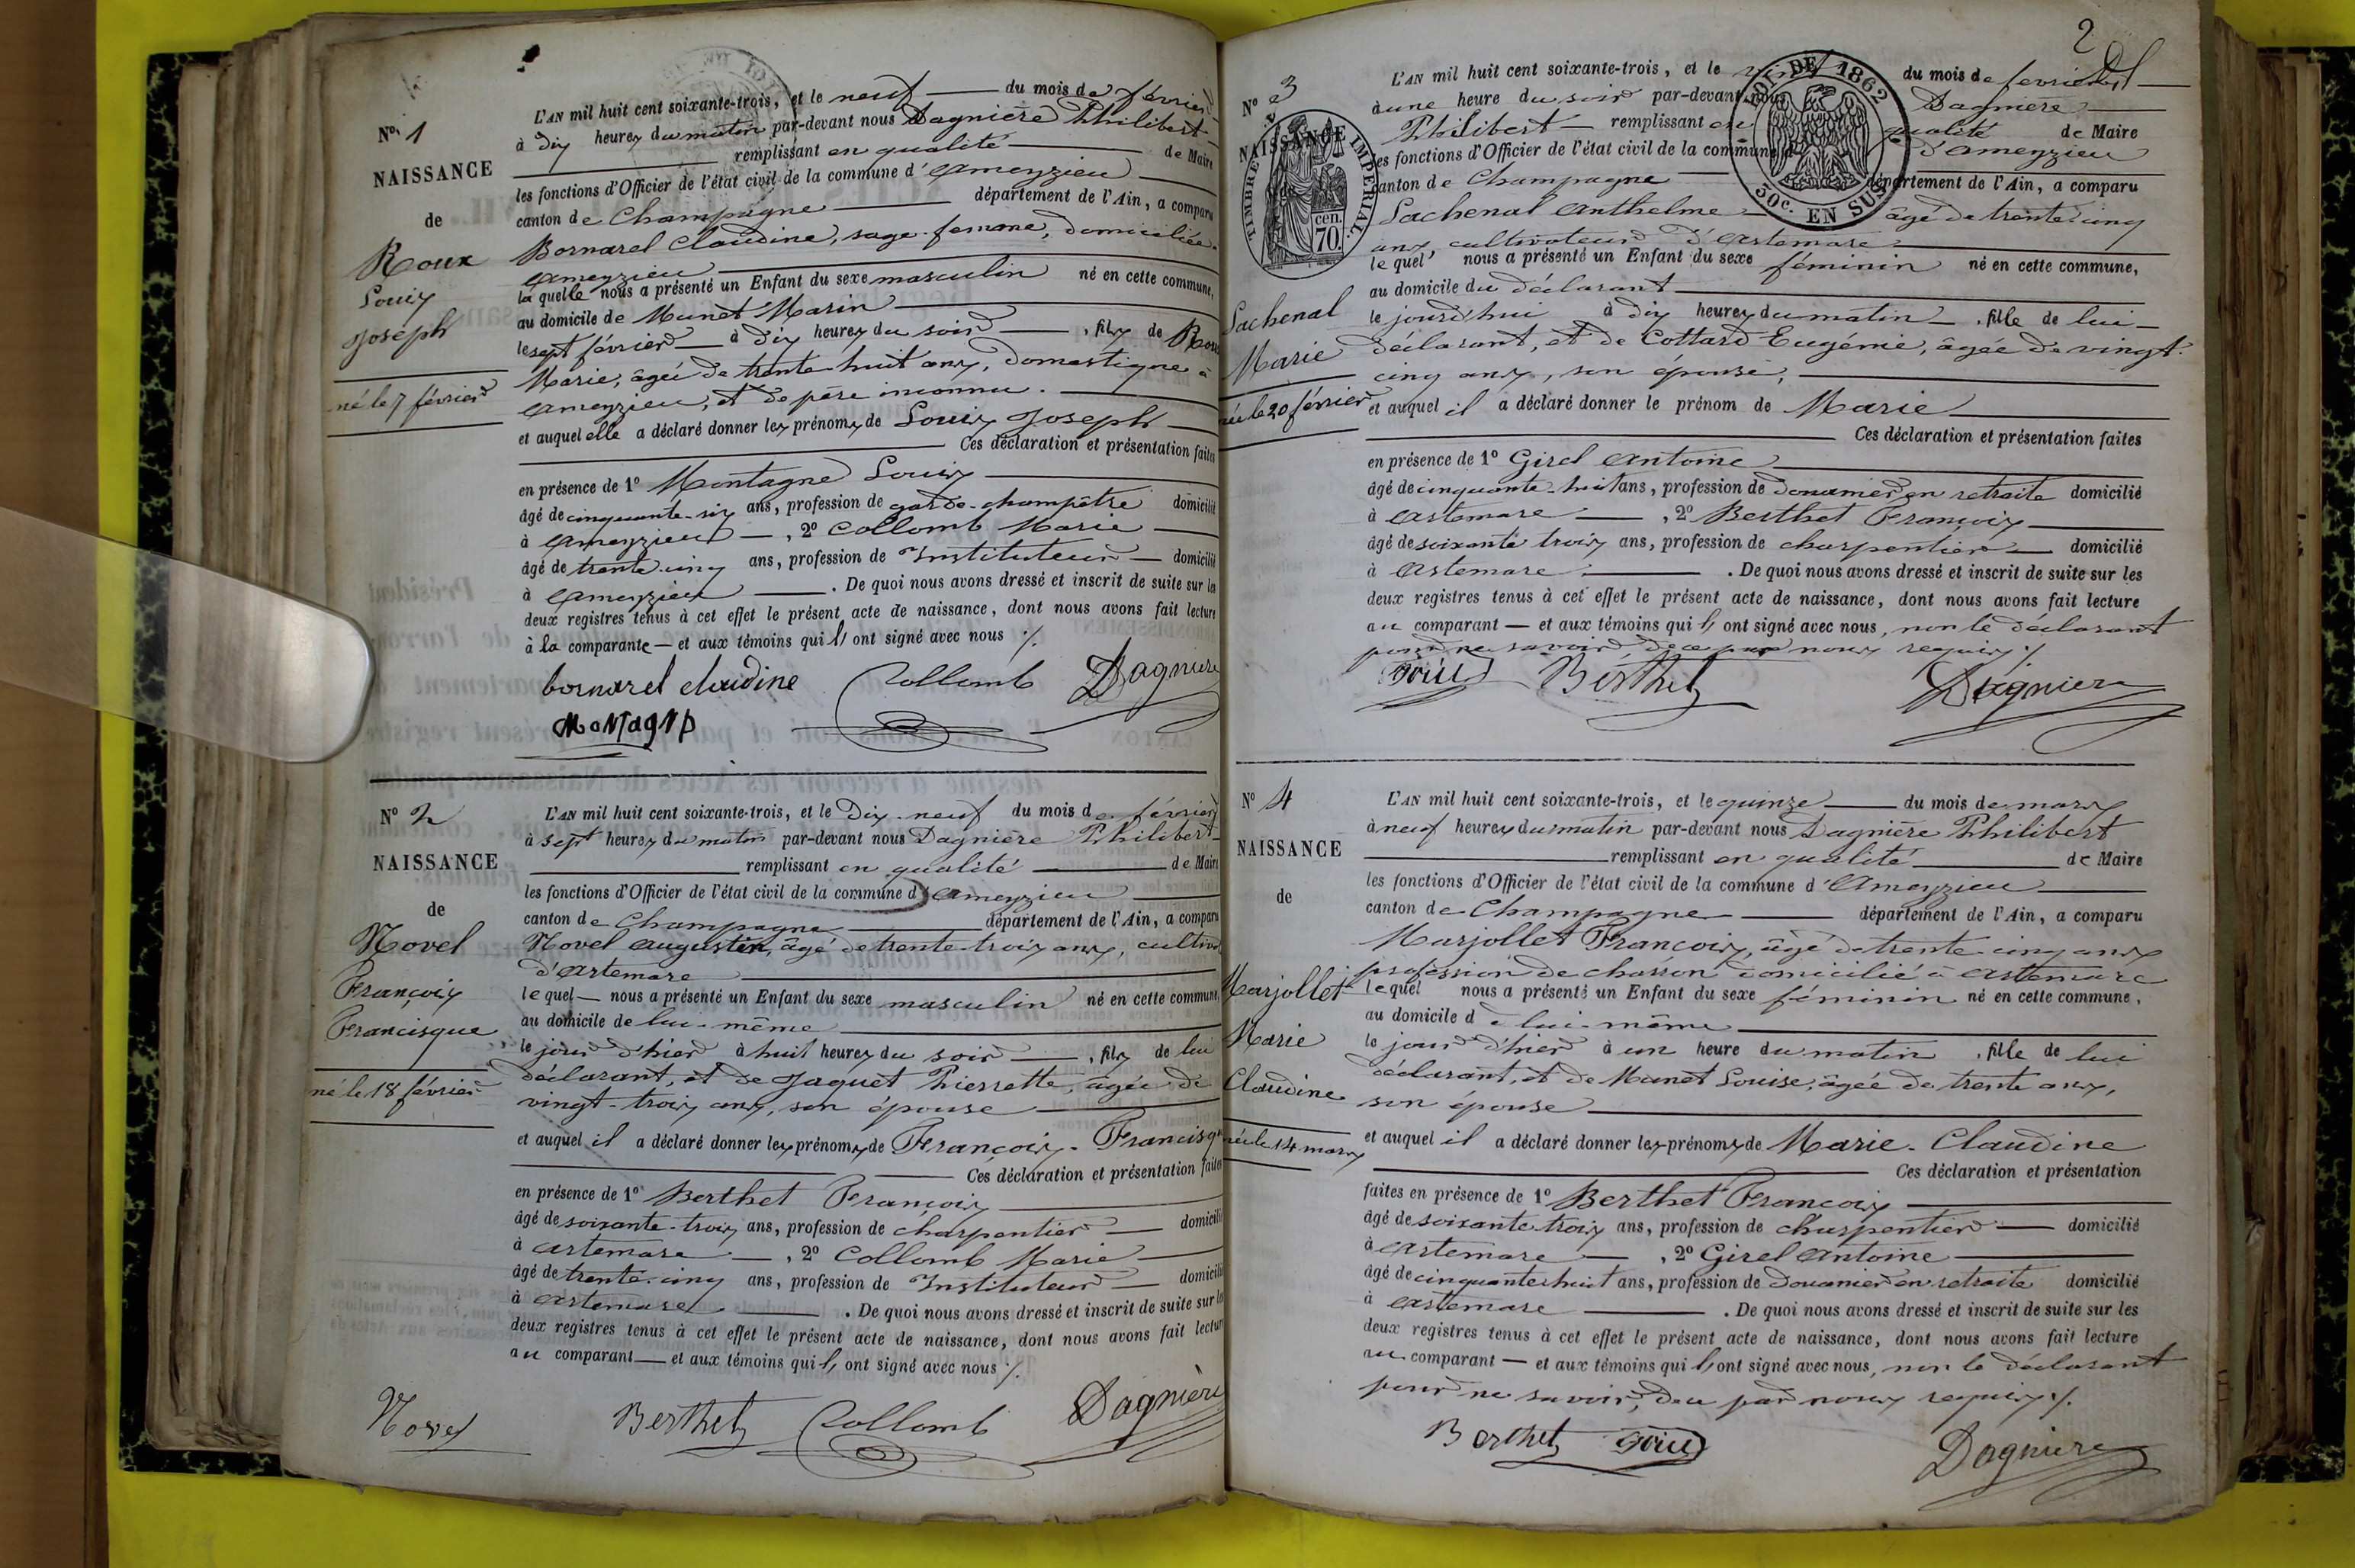 N° 1
NAISSANCE
de
Roux
Louis
Joseph
né le 7 février
L'AN mil huit cent soixante-trois, et le neuf du mois de février
à dix heures du matin par-devant nous Dagnière Philibert
remplissant en qualité de Maire
les fonctions d'Officier de l'état civil de la commune d'Ameyzieu
canton de Champagne département de l'Ain, a comparu
Bornarel Claudine, sage-femme, domiciliée
Ameyzieu
laquelle nous a présenté un Enfant du sexe masculin né en cette commune,
au domicile de Munet Marin
le sept février à dix heures du soir, fils de Roux
Marie, âgée de trente-huit ans, domestique à
Ameyzieu, et de père inconnu.
et auquel elle a déclaré donner les prénoms de Louis Joseph
Ces déclaration et présentation faites
en présence de 1° Montagne Louis
âgé de cinquante-six ans, profession de garde-champêtre domicilié
à Ameyzieu, 2° Collomb Marie
âgé de trente-cinq ans, profession de Instituteur domicilié
à Ameyzieu. De quoi nous avons dressé et inscrit de suite sur les
deux registres tenus à cet effet le présent acte de naissance, dont nous avons fait lecture
à la comparante et aux témoins qui ont signé avec nous
bornarel claudine Collomb Dagnière
MoNTagNe
N° 2
NAISSANCE
de
Novel
François
Francisque
né le 18 février
L'AN mil huit cent soixante-trois, et le Dix-neuf du mois de février
à sept heures du matin par-devant nous Dagnière Philibert
remplissant en qualité de Maire
les fonctions d'Officier de l'état civil de la commune d'Ameyzieu
canton de Champagne département de l'Ain, a comparu
Novel Augustin, âgé de trente-trois ans, cultiv
d'Artemare
lequel nous a présenté un Enfant du sexe masculin né en cette commune,
au domicile de lui-même
le jour d'hier à huit heures du soir, fils de lui
déclarant, et de Jaquet Pierrette, âgée de
vingt-trois ans, son épouse
et auquel il a déclaré donner les prénoms de François-Francisque
Ces déclaration et présentation faites
en présence de 1° Berthet François
âgé de soixante-trois ans, profession de charpentier domicilié
à Artemare, 2° Collomb Marie
âgé de trente-cinq ans, profession de Instituteur domicilié
à Artemare. De quoi nous avons dressé et inscrit de suite sur les
deux registres tenus à cet effet le présent acte de naissance, dont nous avons fait lecture
au comparant et aux témoins qui ont signé avec nous
Novel Berthet Collomb Dagnière
2
N° 3
NAISSANCE
TIMBRE IMPERIAL
70 cen.
LOI DE 1862
50c. EN SUS
Lachenal
Marie
née le 20 février
L'AN mil huit cent soixante-trois, et le vingt du mois de février
à une heure du soir par-devant nous Dagnière
Philibert remplissant en qualité de Maire
les fonctions d'Officier de l'état civil de la commune d'Ameyzieu
canton de Champagne département de l'Ain, a comparu
Lachenal Anthelme âgé de trente cinq
ans, cultivateur d'Artemare
lequel nous a présenté un Enfant du sexe féminin né en cette commune,
au domicile du déclarant
le jourd'hui à dix heures du matin, fille de lui
déclarant, et de Cottard Eugénie, âgée de vingt-
cinq ans, son épouse,
et auquel il a déclaré donner le prénom de Marie
Ces déclaration et présentation faites
en présence de 1° Girel Antoine
âgé de cinquante-huit ans, profession de douanier en retraite domicilié
à Artemare, 2° Berthet François
âgé de soixante trois ans, profession de charpentier domicilié
à Artemare. De quoi nous avons dressé et inscrit de suite sur les
deux registres tenus à cet effet le présent acte de naissance, dont nous avons fait lecture
au comparant et aux témoins qui ont signé avec nous, non le déclarant
pour ne savoir, de ce par nous requis
Berthet Dagnière
N° 4
NAISSANCE
de
Marjollet
Marie
Claudine
née le 14 mars
L'AN mil huit cent soixante-trois, et le quinze du mois de mars
à neuf heures du matin par-devant nous Dagnière Philibert
remplissant en qualité de Maire
les fonctions d'Officier de l'état civil de la commune d'Ameyzieu
canton de Champagne département de l'Ain, a comparu
Marjollet François, âgé de trente cinq ans
profession de charron domicilié à Artemare
lequel nous a présenté un Enfant du sexe féminin né en cette commune,
au domicile de lui-même
le jour d'hier à un heure du matin, fille de lui
déclarant, et de Munet Louise, âgée de trente ans,
son épouse
et auquel il a déclaré donner les prénoms de Marie-Claudine
Ces déclaration et présentation
faites en présence de 1° Berthet François
âgé de soixante-trois ans, profession de charpentier domicilié
à Artemare, 2° Girel Antoine
âgé de cinquante huit ans, profession de Douanier en retraite domicilié
à Artemare. De quoi nous avons dressé et inscrit de suite sur les
deux registres tenus à cet effet le présent acte de naissance, dont nous avons fait lecture
au comparant et aux témoins qui ont signé avec nous, non le déclarant
pour ne savoir, de ce par nous requis
Berthet Dagnière